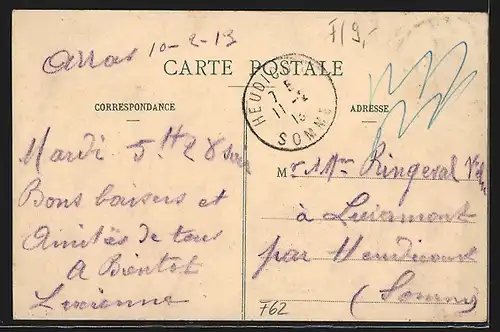 F19,-
Arras 10-2-13
CARTE POSTALE
CORRESPONDANCE
ADRESSE
HEUDICOURT
7
11 -2
13
SOMME
Mardi 5H 28 soir
Bons baisers et
Amitiés de tous
A Bientot
Lucienne
Mr & Mme Ringeval
à Liéramont
par Heudicourt
(Somme)
F62